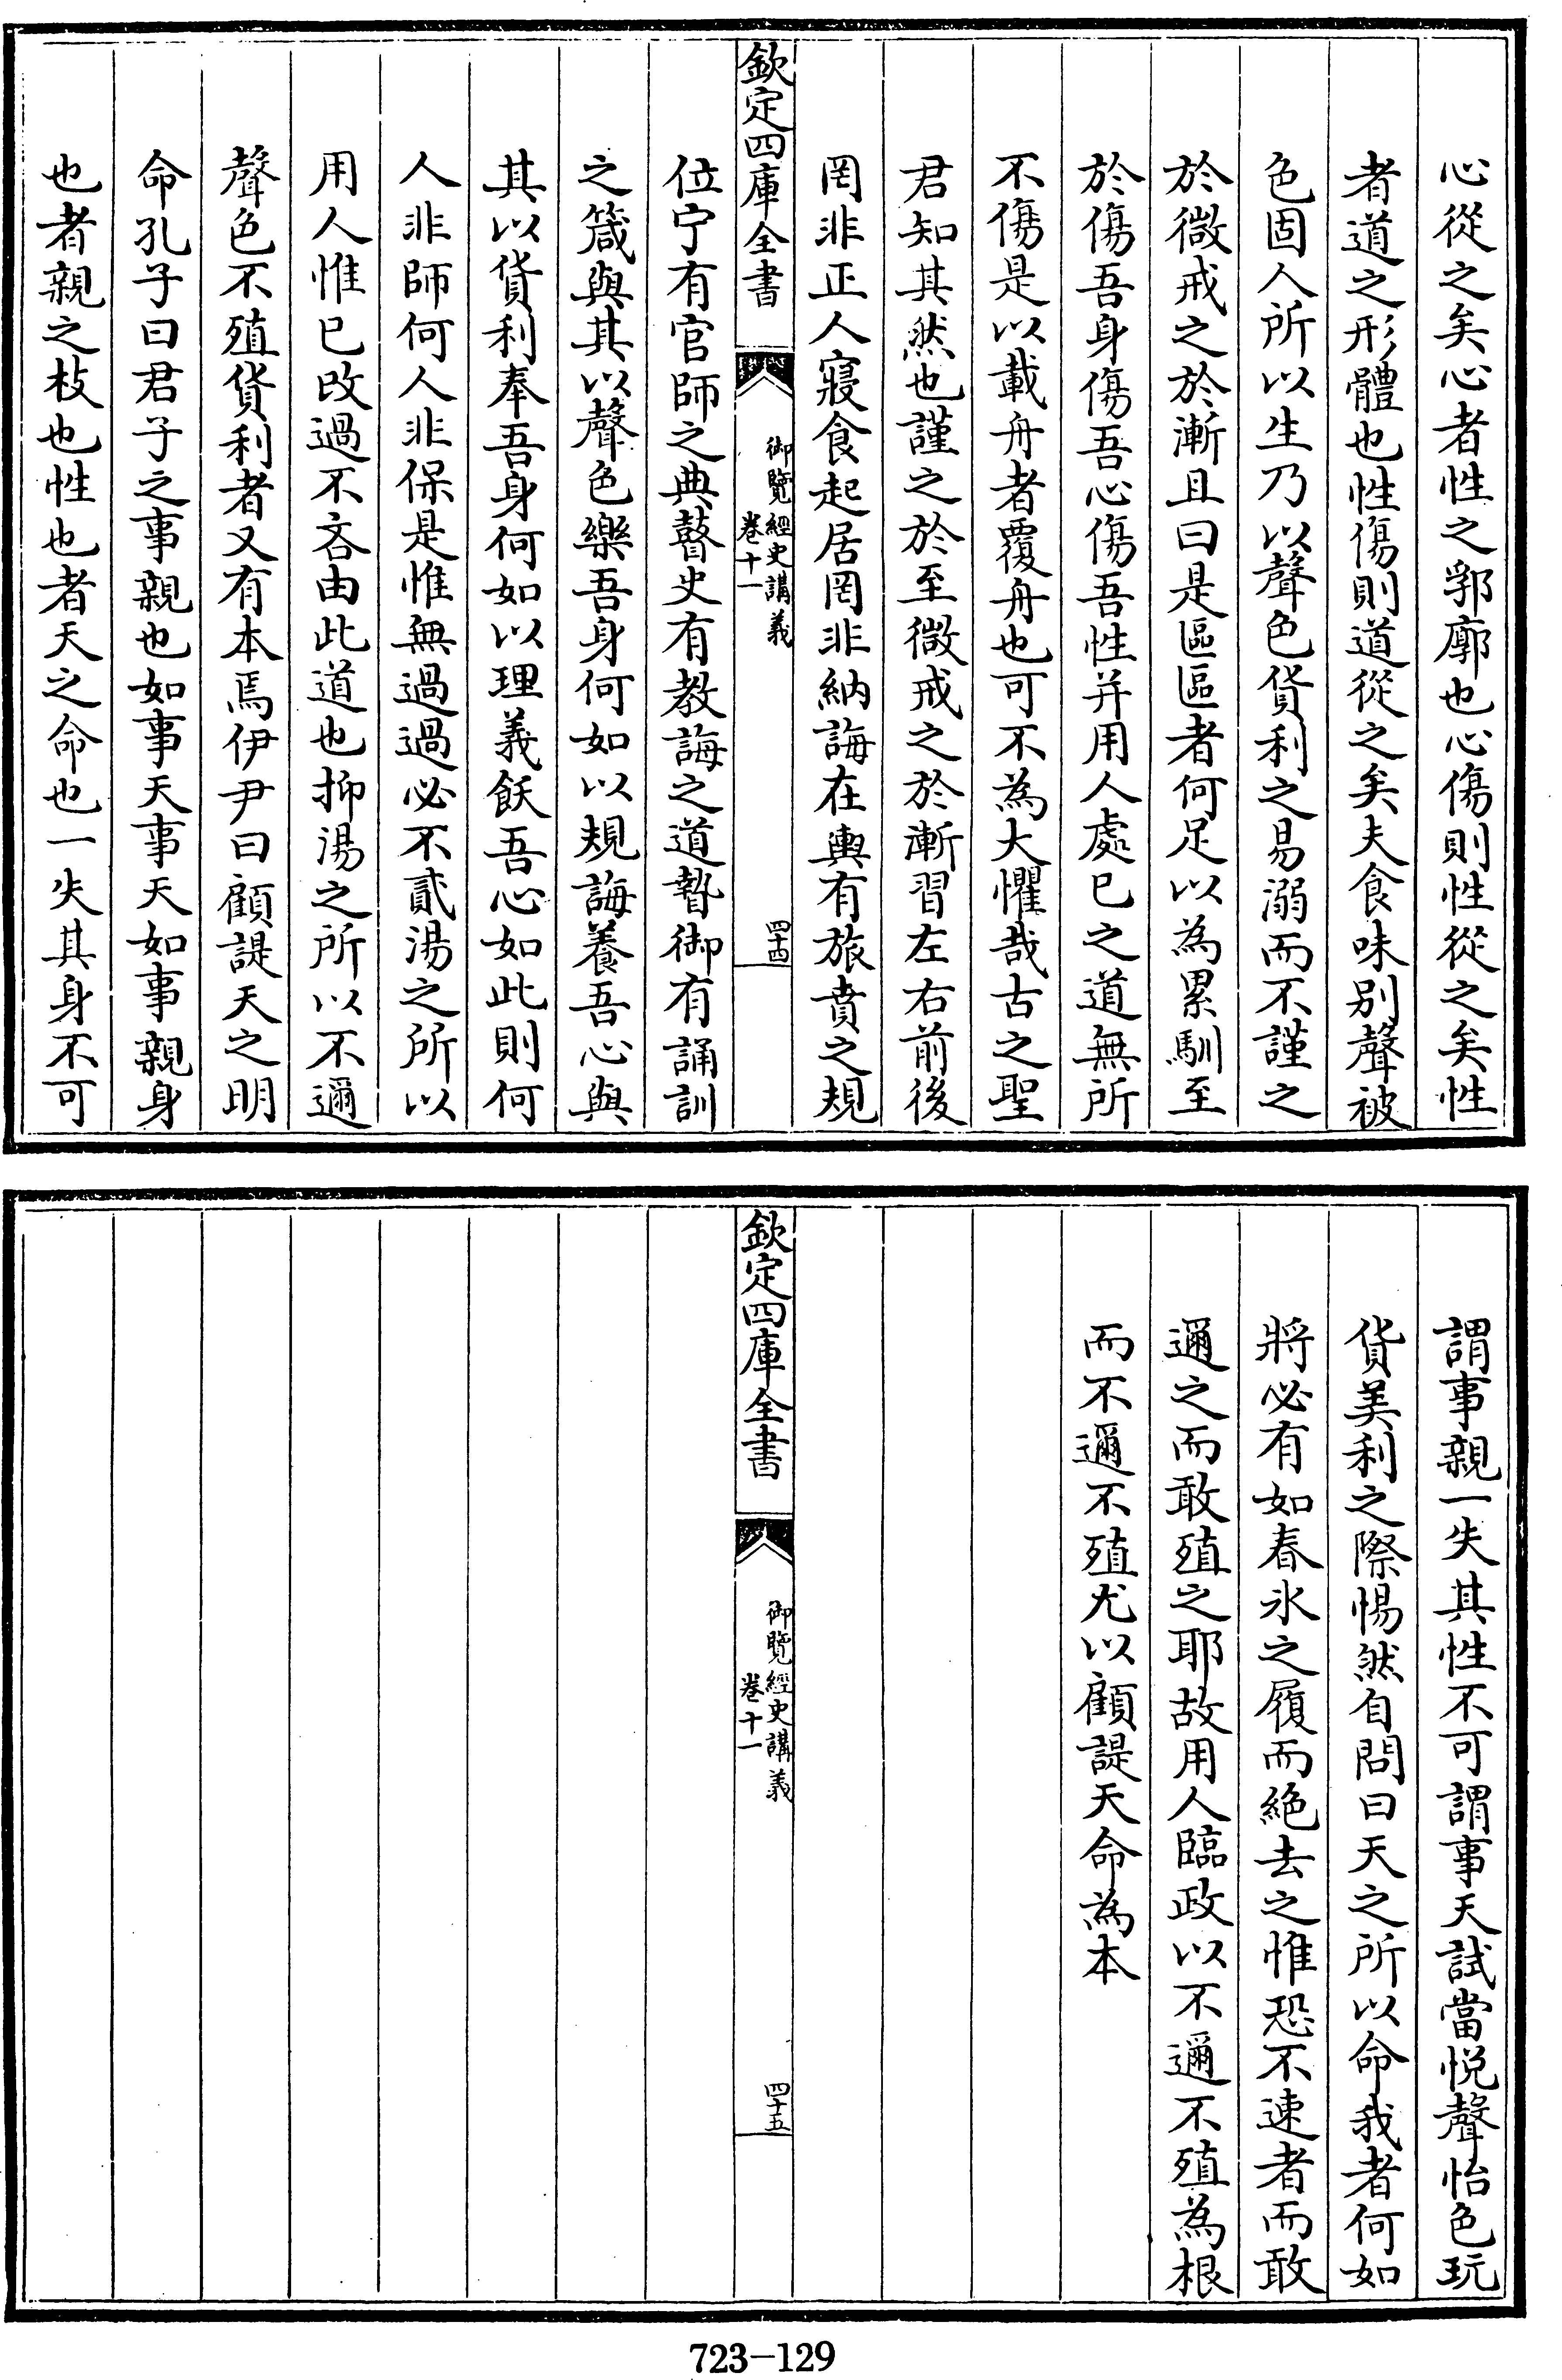 心從之矣心者性之郛廓也心傷則性從之矣性
者道之形體也性傷則道從之矣夫食味别聲被
色固人所以生乃以聲色貨利之易溺而不謹之
於微戒之於漸且曰是區區者何足以為累馴至
於傷吾身傷吾心傷吾性并用人處已之道無所
不傷是以載舟者覆舟也可不為大懼哉古之聖
君知其然也謹之於至微戒之於漸習左右前後
罔非正人寢食起居罔非納誨在輿有旅賁之規
欽定四庫全書
御覽經史講義
卷十一
四十四
位宁有官師之典瞽史有教誨之道暬御有誦訓
之箴與其以聲色樂吾身何如以規誨養吾心與
其以貨利奉吾身何如以理義飫吾心如此則何
人非師何人非保是惟無過過必不貳湯之所以
用人惟已改過不吝由此道也抑湯之所以不邇
聲色不殖貨利者又有本焉伊尹曰顧諟天之明
命孔子曰君子之事親也如事天事天如事親身
也者親之枝也性也者天之命也一失其身不可
謂事親一失其性不可謂事天試當悦聲怡色玩
貨美利之際惕然自問曰天之所以命我者何如
將必有如春氷之履而絶去之惟恐不速者而敢
邇之而敢殖之耶故用人臨政以不邇不殖為根
而不邇不殖尤以顧諟天命為本
欽定四庫全書
御覽經史講義
卷十一
四十五
723-129